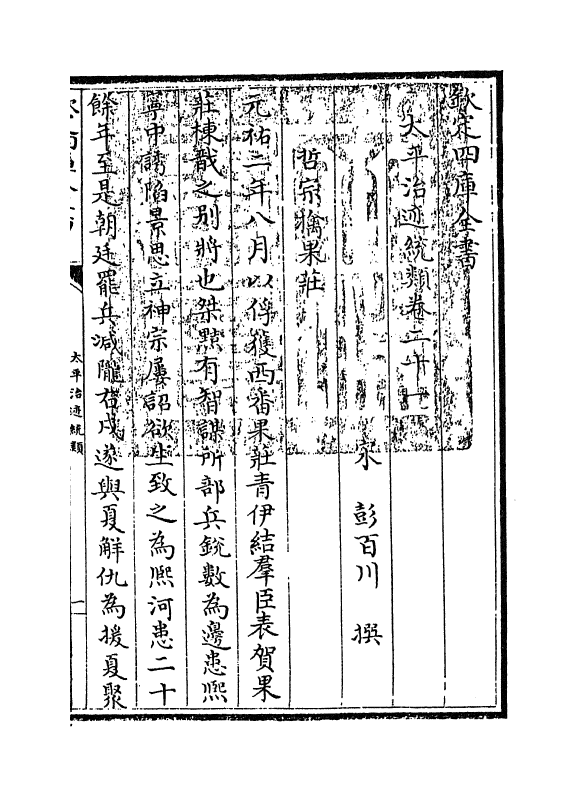 欽定四庫全書
太平治迹統類卷二十一
宋 彭百川 撰
哲宗擒果莊
元祐二年八月以俘獲西畨果莊青伊結羣臣表賀果
莊棟戩之别將也桀黠有智謀所部兵銳數為邊患熈
寧中誘陷景思立神宗屢詔欲生致之為熈河患二十
餘年至是朝廷罷兵減隴右戍遂與夏解仇為援夏聚
太平治迹統類